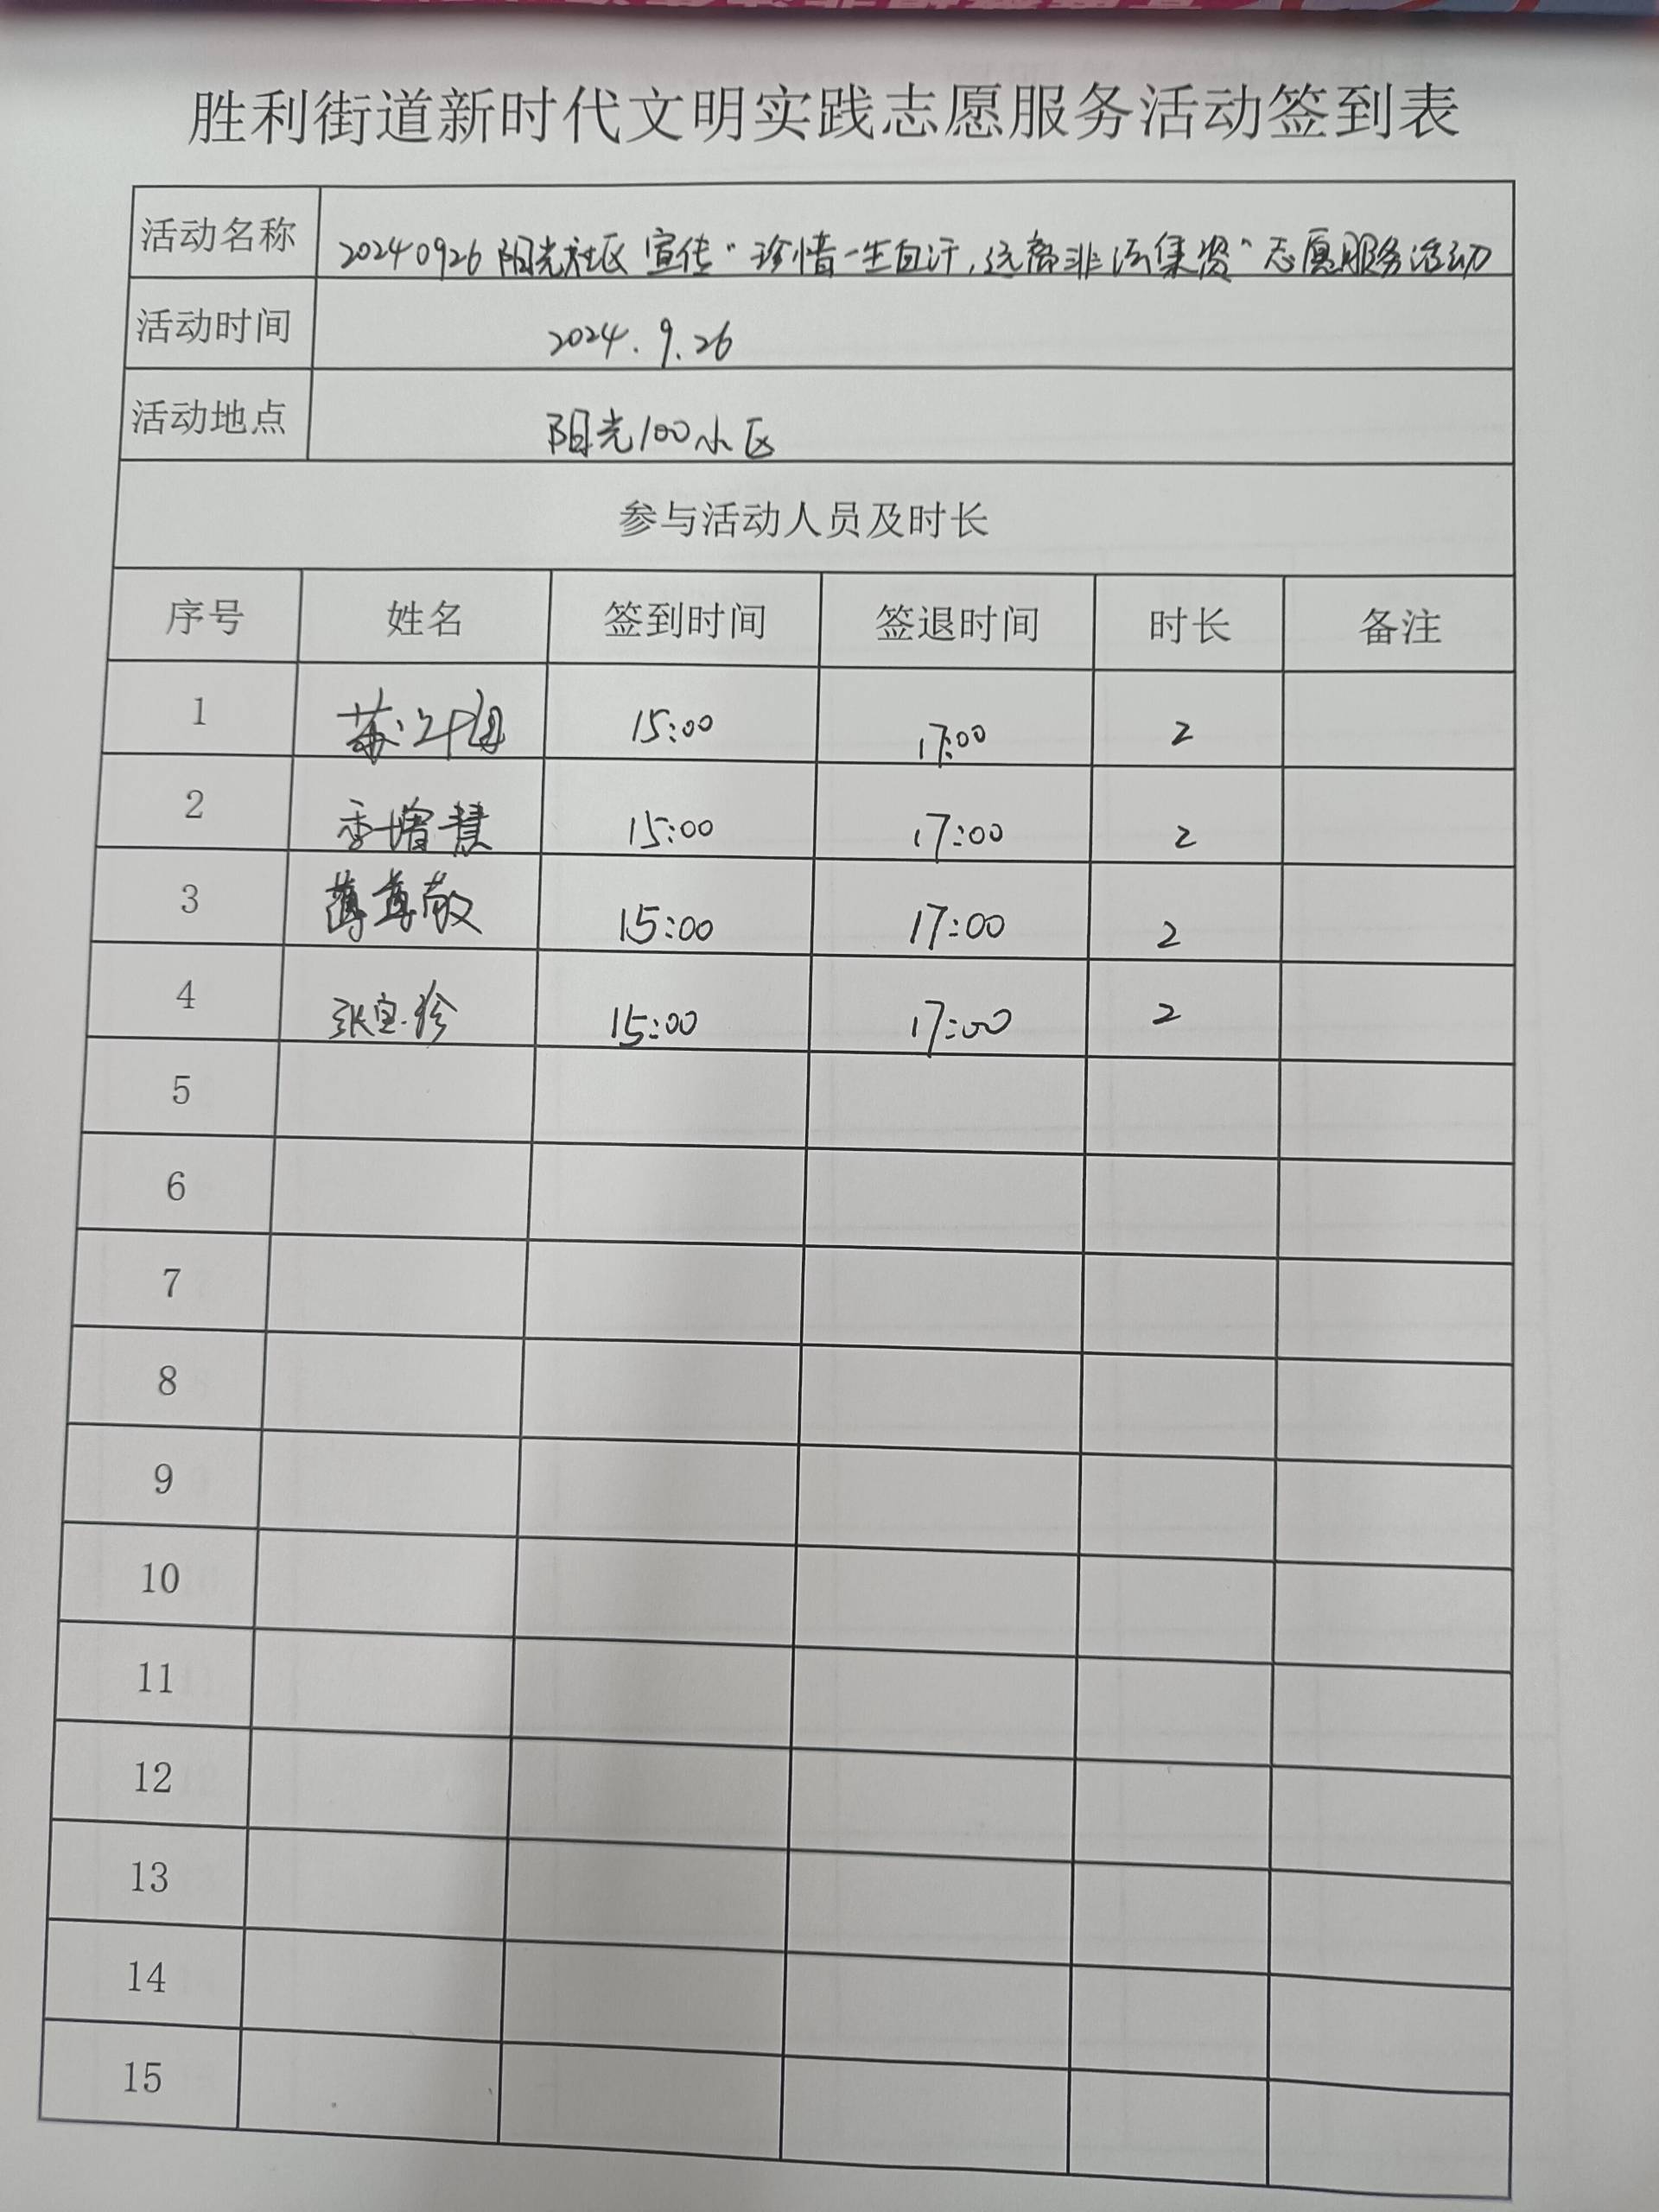 胜利街道新时代文明实践志愿服务活动签到表
活动名称 20240926阳光社区宣传“珍惜一生血汗，远离非法集资”志愿服务活动
活动时间 2024.9.26
活动地点 阳光100小区
参与活动人员及时长
序号 姓名 签到时间 签退时间 时长 备注
1 15:00 17:00 2
2 季增慧 15:00 17:00 2
3 薄尊敬 15:00 17:00 2
4 张宝珍 15:00 17:00 2
5
6
7
8
9
10
11
12
13
14
15